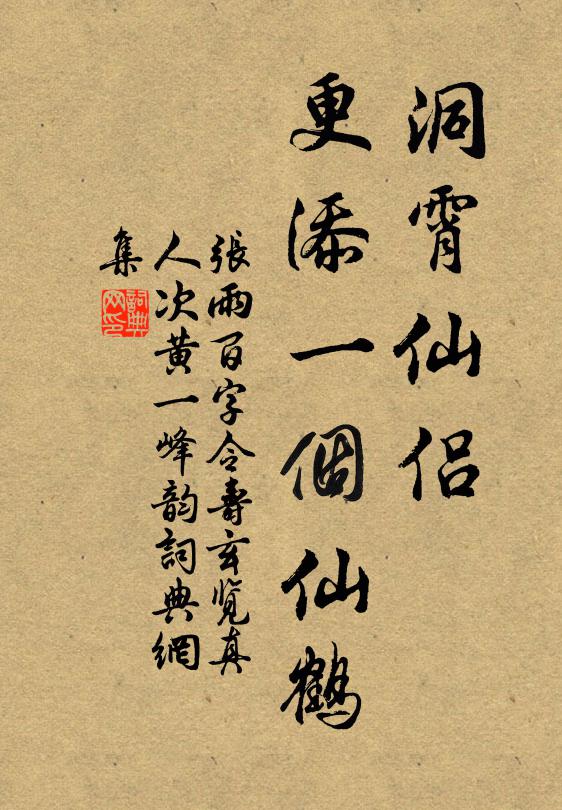 洞霄仙侣
更添一個仙鶴
張雨百字令壽玄覽真
人次黄一峰韵詞典網
集
詞典
网印